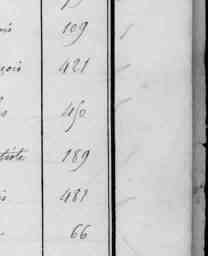 109
çois 421
450
tiste 189
481
66